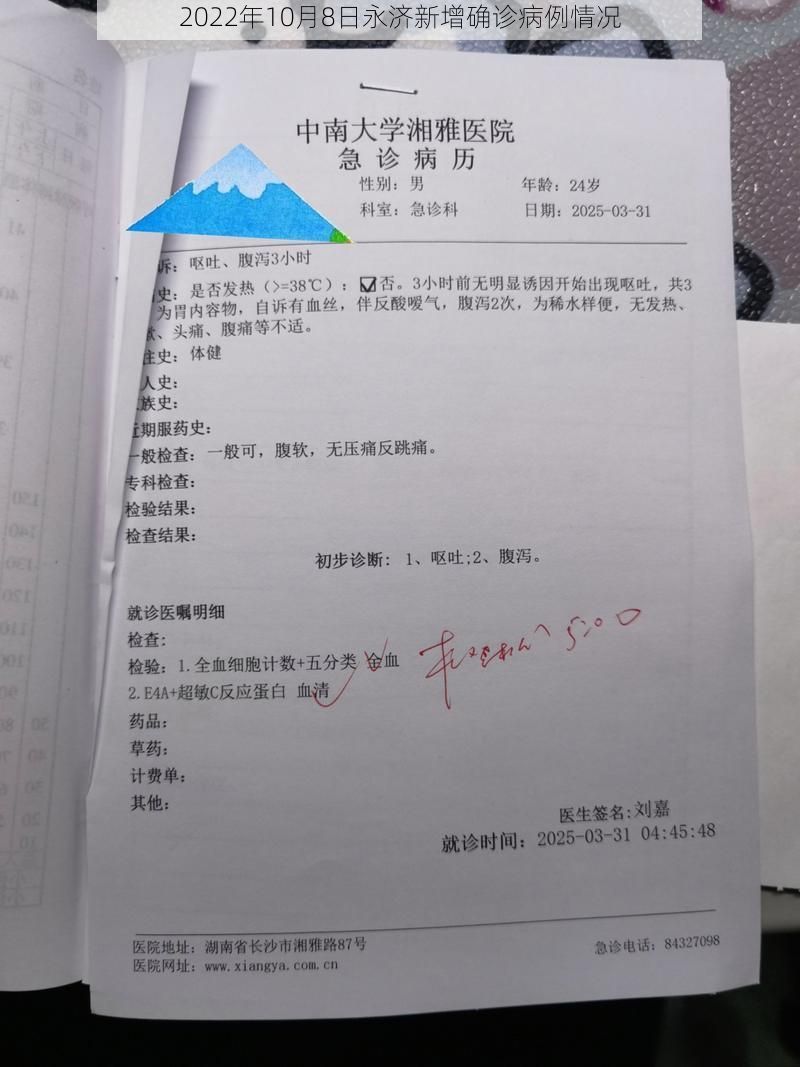 2022年10月8日永济新增确诊病例情况
中南大学湘雅医院
急诊病历
性别：男 年龄：24岁
科室：急诊科 日期：2025-03-31
诉：呕吐、腹泻3小时
史：是否发热（>=38℃）：☑否。3小时前无明显诱因开始出现呕吐，共3
为胃内容物，自诉有血丝，伴反酸嗳气，腹泻2次，为稀水样便，无发热、
、头痛、腹痛等不适。
往史：体健
人史：
族史：
近期服药史：
一般检查：一般可，腹软，无压痛反跳痛。
专科检查：
检验结果：
检查结果：
初步诊断： 1、呕吐;2、腹泻。
就诊医嘱明细
检查：
检验：1.全血细胞计数+五分类 全血
2.E4A+超敏C反应蛋白 血清
5:00
药品：
草药：
计费单：
其他：
医生签名:刘嘉
就诊时间：2025-03-31 04:45:48
医院地址：湖南省长沙市湘雅路87号 急诊电话：84327098
医院网址：www.xiangya.com.cn